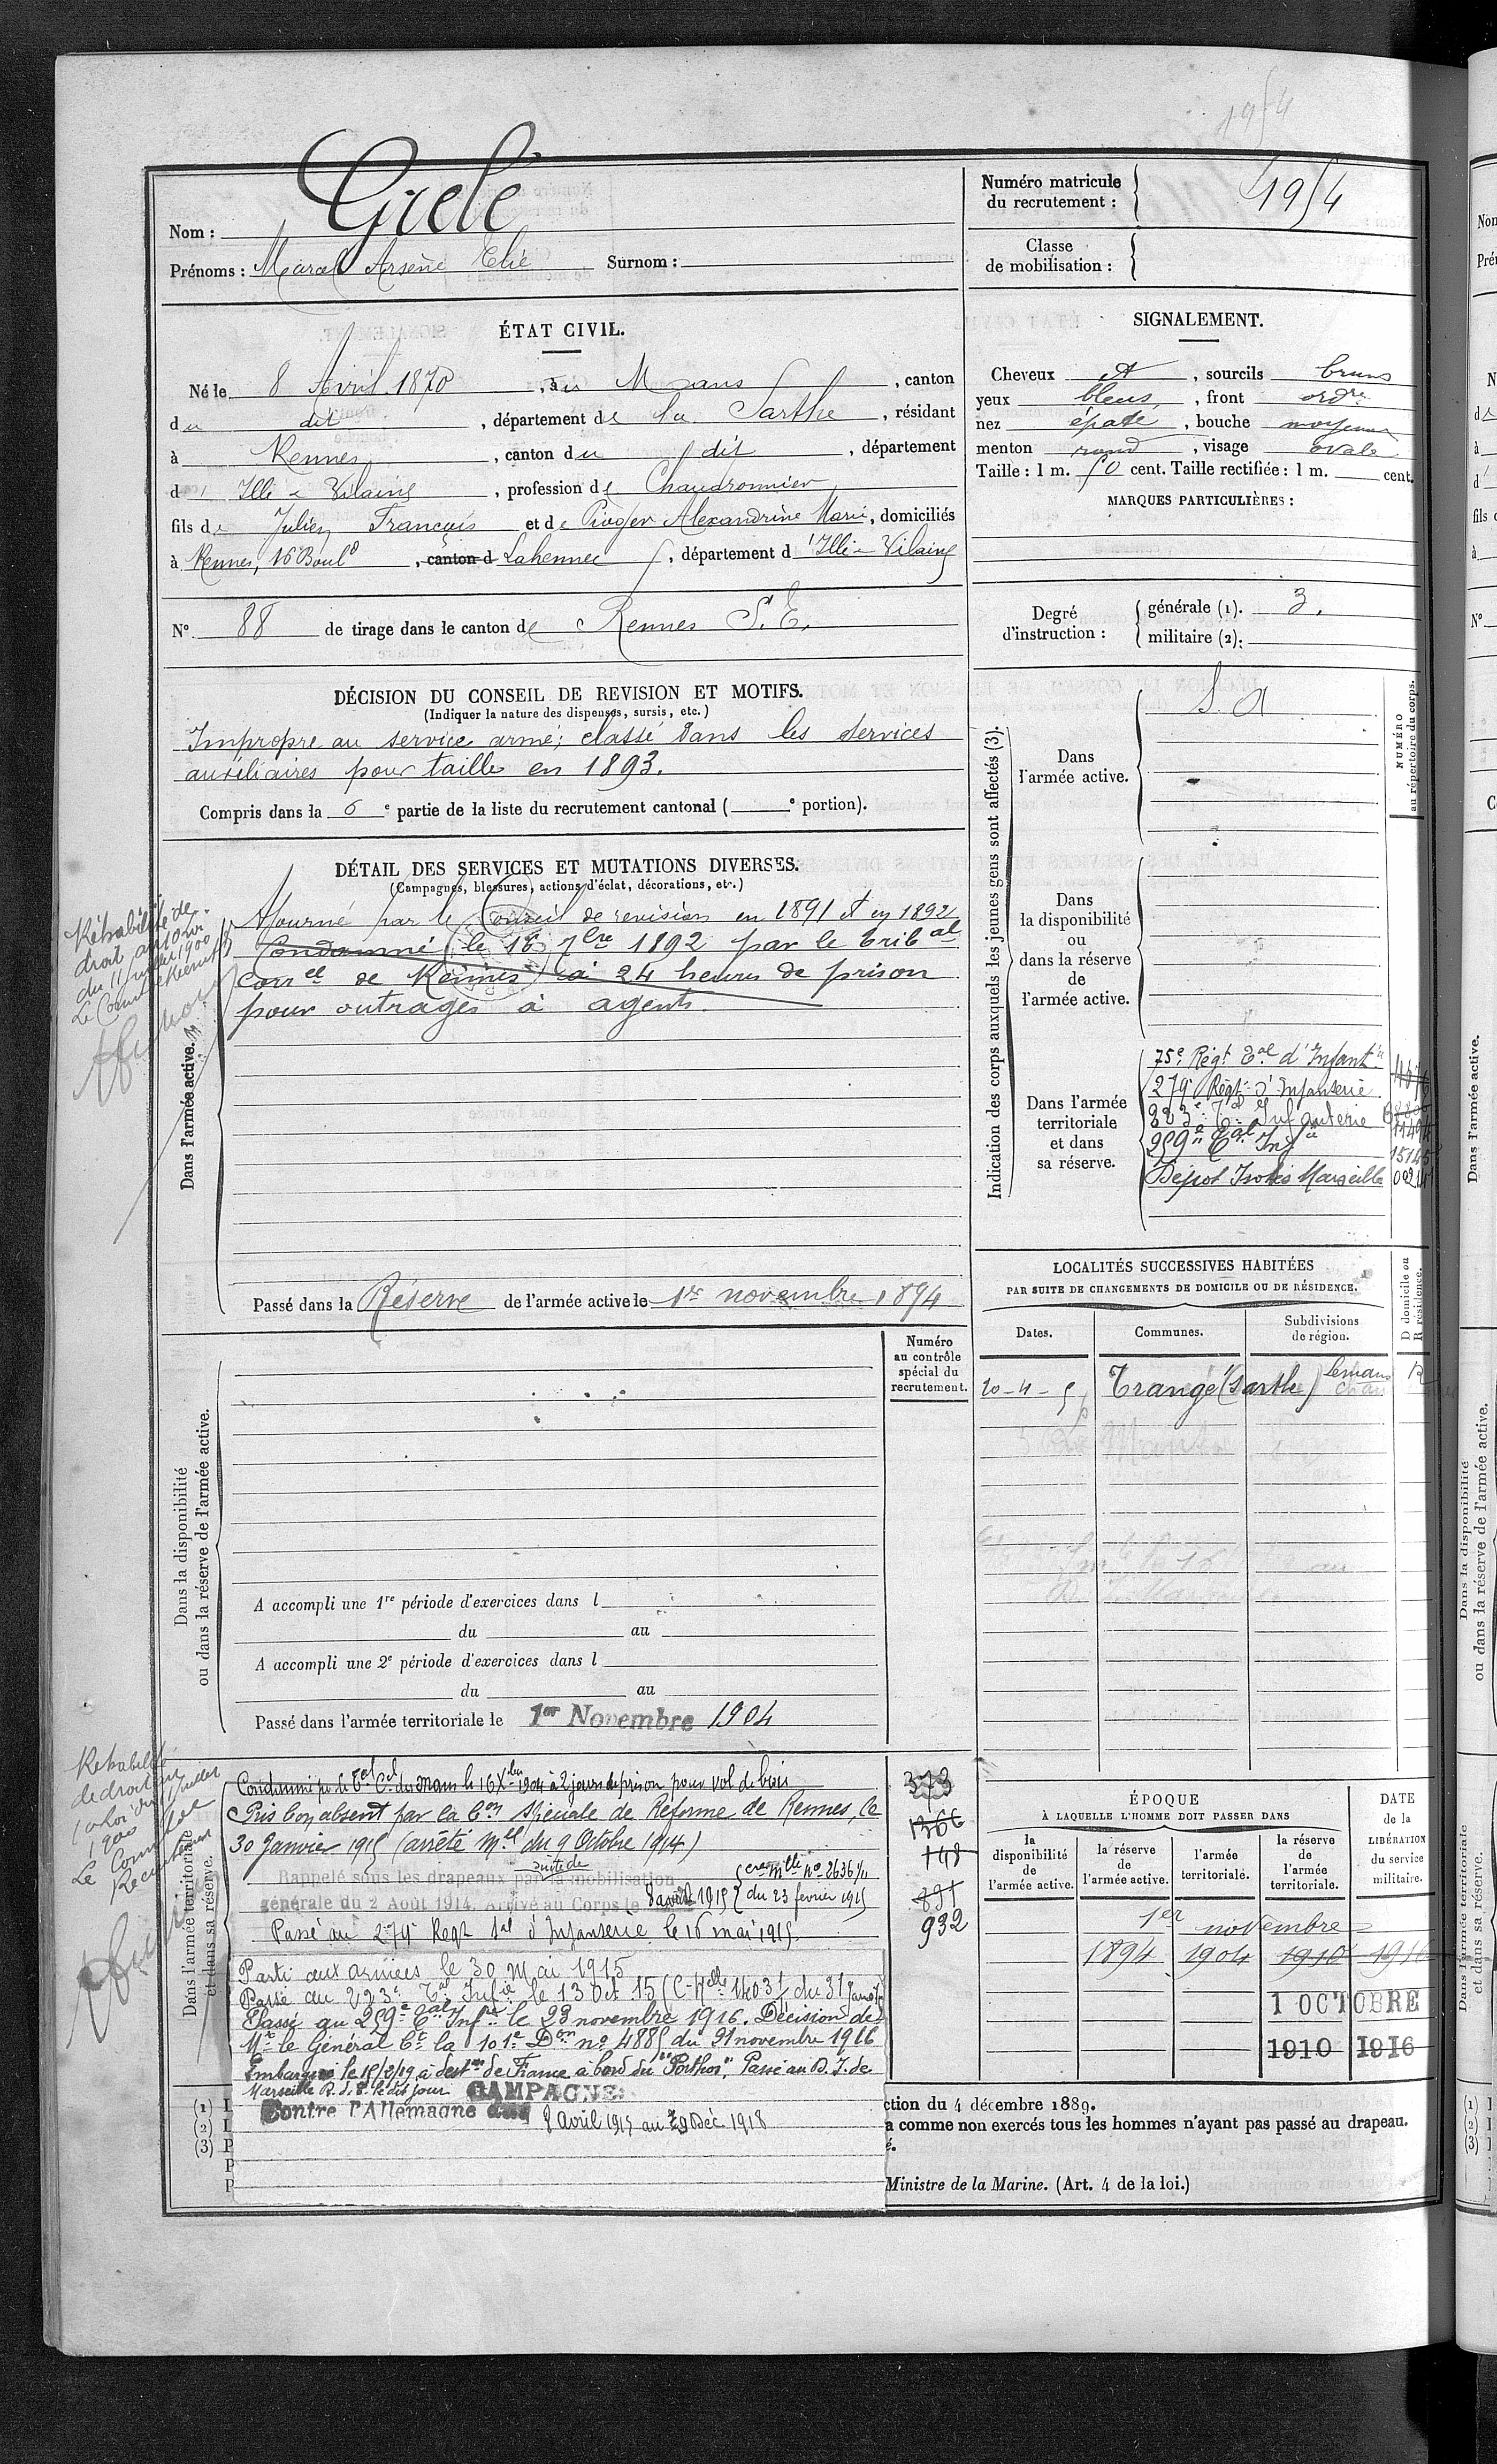 1954
Nom : Grelé
Prénoms : Marcel Arsène Elie Surnom :
Numéro matricule du recrutement : 1954
Classe de mobilisation :
ÉTAT CIVIL.
Né le 8 Avril 1870, au Mans, canton
du dit, département de la Sarthe, résidant
à Rennes, canton du dit, département
d'Ille-&-Vilaine, profession de Chaudronnier
fils de Julien François et de Alexandrine Marie, domiciliés
à Rennes, 16 Boulᵈ, canton d Lahennec, département d'Ille-&-Vilaine
N° 88 de tirage dans le canton de Rennes S.E.
SIGNALEMENT.
Cheveux et, sourcils bruns
yeux bleus, front ordʳᵉ
nez épaté, bouche moyenne
menton rond, visage ovale
Taille : 1 m. 50 cent. Taille rectifiée : 1 m. cent.
MARQUES PARTICULIÈRES :
Degré d'instruction :
générale (1). 3.
militaire (2):
DÉCISION DU CONSEIL DE REVISION ET MOTIFS.
(Indiquer la nature des dispenses, sursis, etc.)
Impropre au service armé; classé dans les services
auxiliaires pour taille en 1893.
Compris dans la 6 e partie de la liste du recrutement cantonal ( e portion).
DÉTAIL DES SERVICES ET MUTATIONS DIVERSES.
(Campagnes, blessures, actions d'éclat, décorations, etc.)
Dans l'armée active.
Ajourné par le Conseil de revision en 1891 et en 1892
Condamné le 18 7bre 1892 par le tribal
correl de Rennes à 24 heures de prison
pour outrages à agents.
Réhabilité de
droit
du 11 juillet 1900
Passé dans la Réserve de l'armée active le 1er novembre 1894
Indication des corps auxquels les jeunes gens sont affectés (3).
NUMÉRO au répertoire du corps.
Dans l'armée active.
S. A
Dans la disponibilité ou dans la réserve de l'armée active.
Dans l'armée territoriale et dans sa réserve.
75e Régt Tal d'Infantie
279 Régt d'Infanterie
223e Tal Infanterie
259e Tal Infie
Dépot Isolés Marseille
LOCALITÉS SUCCESSIVES HABITÉES
PAR SUITE DE CHANGEMENTS DE DOMICILE OU DE RÉSIDENCE.
Dates.
Communes.
Subdivisions de région.
D domicile ou R résidence.
Trangé (Sarthe) Lemans R
Dans la disponibilité
ou dans la réserve de l'armée active.
Numéro
au contrôle
spécial du
recrutement.
A accompli une 1re période d'exercices dans l
du au
A accompli une 2e période d'exercices dans l
du au
Passé dans l'armée territoriale le 1er Novembre 1904
Réhabilité
de droit
1900
Dans l'armée territoriale
et dans sa réserve.
Condamné par le Tal Cel du Mans le 16 Xbre 1904 à 2 jours de prison pour vol de bois
Pris bon absent par la Con spéciale de Réforme de Rennes, le
30 Janvier 1915 (arrêté mel du 9 Octobre 1914)
Rappelé sous les drapeaux par suite de la mobilisation
générale du 2 Août 1914. Arrivé au Corps le 8 avril 1915 (cre mlle No 2636 1/11 du 23 février 1915
Passé au 279 Regt tal d'Infanterie le 16 mai 1915.
Parti aux armées le 30 Mai 1915
Passé au 223e Tal Infie le 13 Oct 15
Passé au 259e Tal Infie le 23 novembre 1916. Décision de
Mr le Général Ct la 101e Don no 4885 du 21 novembre 1916
Embarqué le 15/2/19 à destn de France à bord du "Porthos". Passé au D.I. de
Marseille R.d.S. le dit jour
CAMPAGNE
Contre l'Allemagne du 8 avril 1915 au 29 Déc 1918
373
1366
148
891
932
ÉPOQUE
À LAQUELLE L'HOMME DOIT PASSER DANS
la disponibilité de l'armée active.
la réserve de l'armée active.
l'armée territoriale.
la réserve de l'armée territoriale.
DATE de la LIBÉRATION du service militaire.
1er novembre
1894 1904 1910 1916
1 OCTOBRE
1910 1916
ction du 4 décembre 1889.
a comme non exercés tous les hommes n'ayant pas passé au drapeau.
é.
Ministre de la Marine. (Art. 4 de la loi.)
(1)
(2)
(3)